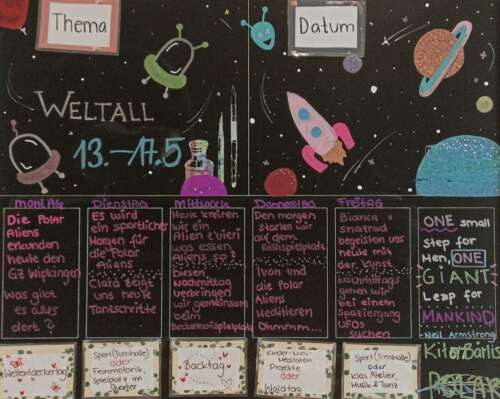 Thema
Datum
WELTALL
13.-17.5
MONTAG
Die Polar
Aliens
erkunden
heute den
GZ Wipkingen
Was gibt
es alles
dort?
DIENSTAG
Es wird
ein sportlicher
Morgen für
die Polar
Aliens
Clara zeigt
uns heute
Tanzschritte
MITTWOCH
Heute kreiren
wir ein
Alien
was essen
Aliens so?
Diesen
Nachmittag
verbringen
wir gemeinsam
beim
DONNERSTAG
Den morgen
starten wir
auf dem
Ivon und
die Polar
Aliens
Meditieren
Ohmmm...
FREITAG
Bianca +
begleiten uns
heute mit
der Kunst
Nachmittags
gehen wir
bei einem
Spaziergang
UFOs
suchen
ONE small
step for
Men, ONE
GIANT
Leap for
MANKIND
Neil Armstrong
Weltentdeckertag
Sport (Turnhalle)
oder
Feinmotorik,
Spielplatz im
Quartier
Backtag
Kinder-
Meditation
Projekte
oder
Waldtag
Sport (Turnhalle)
oder
Kias Atelier,
Musik & Tanz